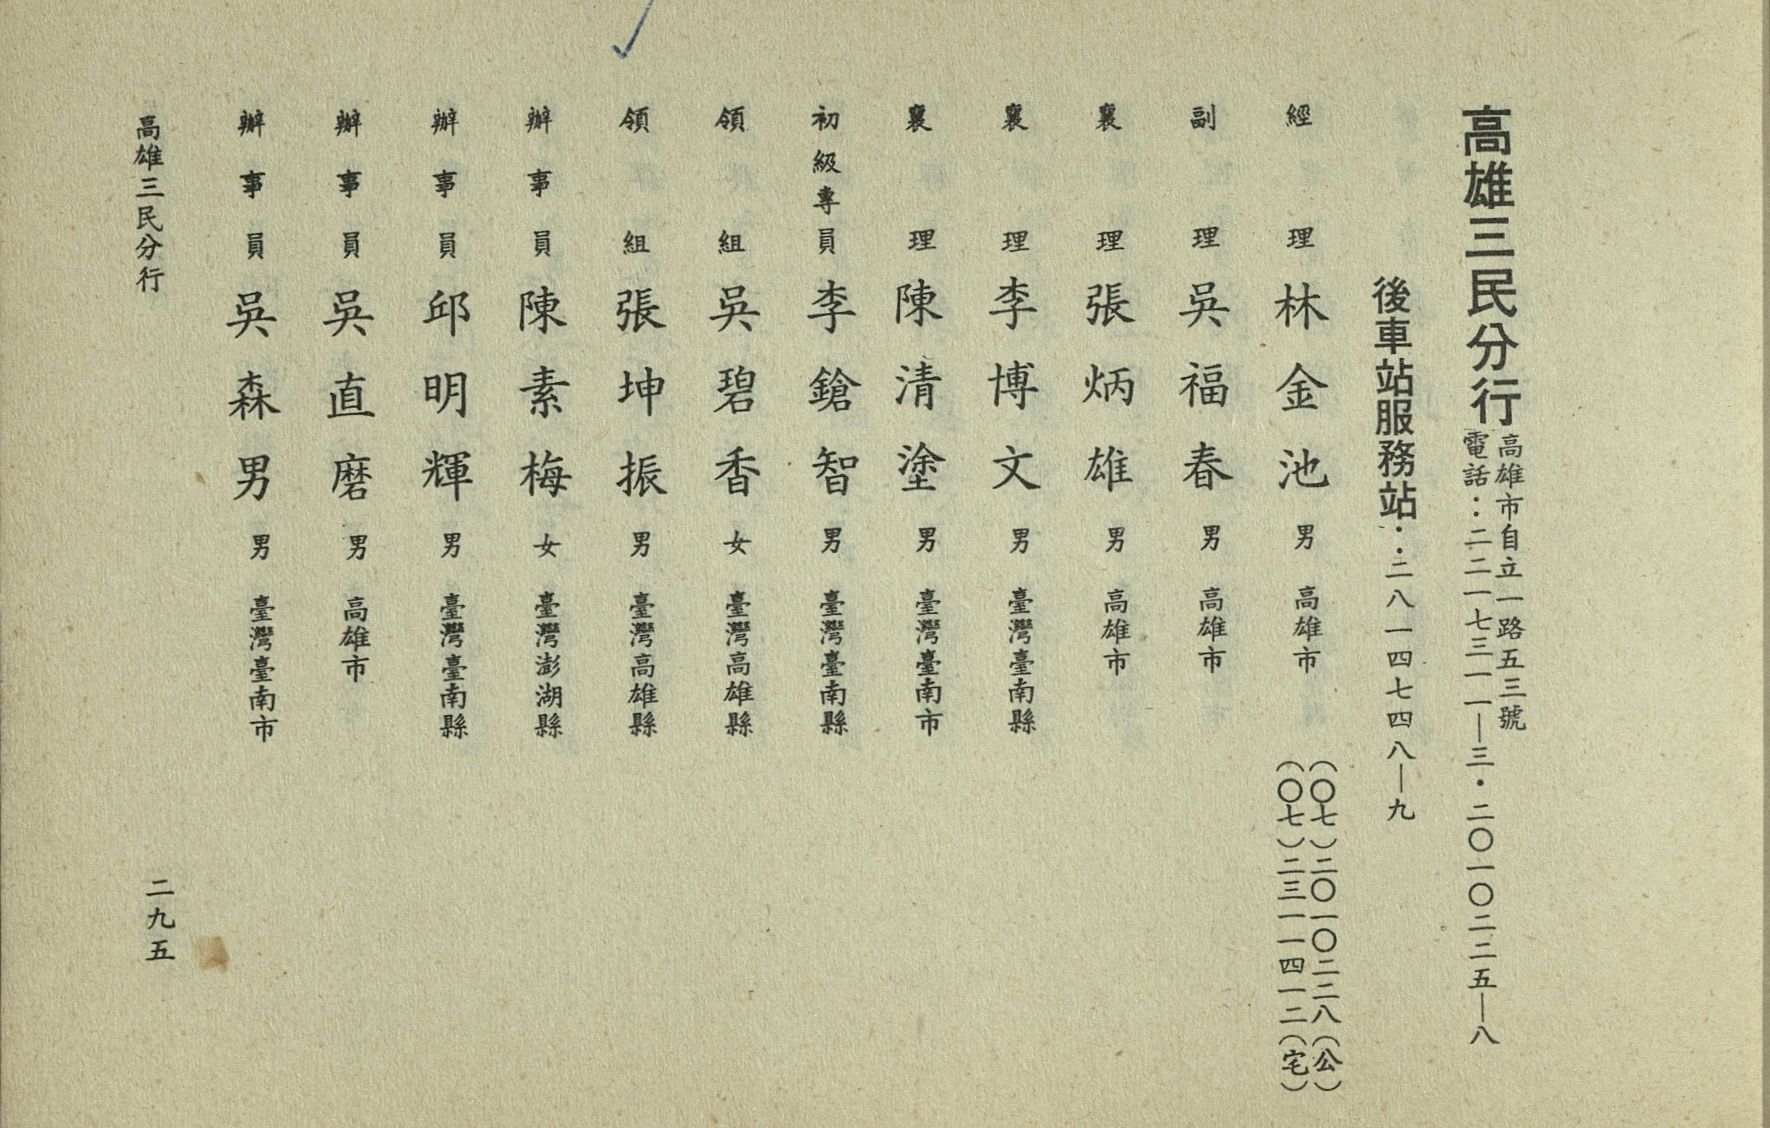 高雄三民分行
高雄市自立一路五三號
電話：二二一七三一一—三・二〇一〇二二五—八
後車站服務站：二八一四七四八—九
經理 林金池 男 高雄市 (〇七)二〇一〇二二八(公)
(〇七)二三一一四一二(宅)
副理 吳福春 男 高雄市
襄理 張炳雄 男 高雄市
襄理 李博文 男 臺灣臺南縣
襄理 陳清塗 男 臺灣臺南市
初級專員 李鎗智 男 臺灣臺南縣
領組 吳碧香 女 臺灣高雄縣
領組 張坤振 男 臺灣高雄縣
辦事員 陳素梅 女 臺灣澎湖縣
辦事員 邱明輝 男 臺灣臺南縣
辦事員 吳直磨 男 高雄市
辦事員 吳森男 男 臺灣臺南市
高雄三民分行
二九五